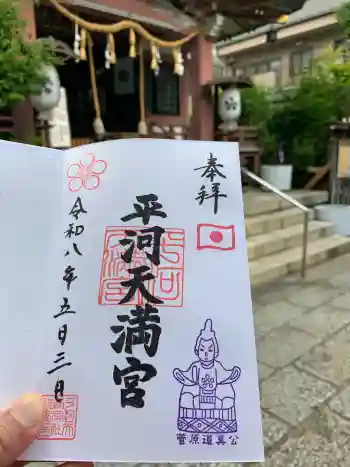 奉拝
平河天満宮
令和八年五月三日
菅原道真公